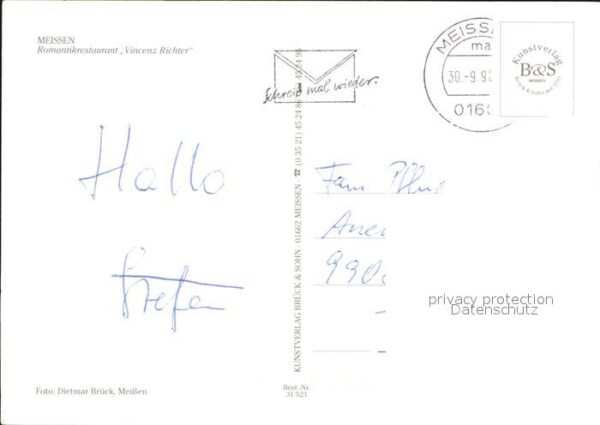 MEISSEN
Romantikrestaurant „Vincenz Richter"
Schreib mal wieder.
MEISSE
ma
30.-9.9
0166
Kunstverlag
B&S
MEISSEN
Hallo
Stefan
KUNSTVERLAG BRÜCK & SOHN · 01662 MEISSEN · ☎ (0 35 21) 45 24 86 45 24 95
Fam
990
privacy protection
Datenschutz
Foto: Dietmar Brück, Meißen
Best.-Nr.
31 523